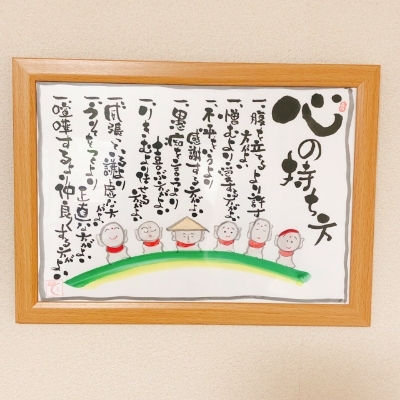 心の持ち方
一、腹を立てるより許す
方がよい
一、憎むより愛する方がよい
一、不平をいうより
感謝する方がよい
一、愚痴を言うより
喜ぶ方がよい
一、りきむより任せる
方がよい
一、威張っているより
謙虚な方がよい
一、うそをつくより
正直な方がよい
一、喧嘩するより仲良くする方が
よい